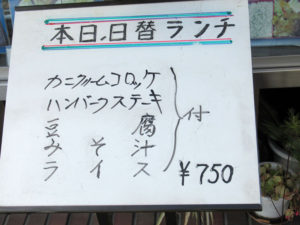 本日.日替ランチ
カニクリームコロッケ
ハンバークステーキ
豆腐
みそ汁
ライス
付
¥750